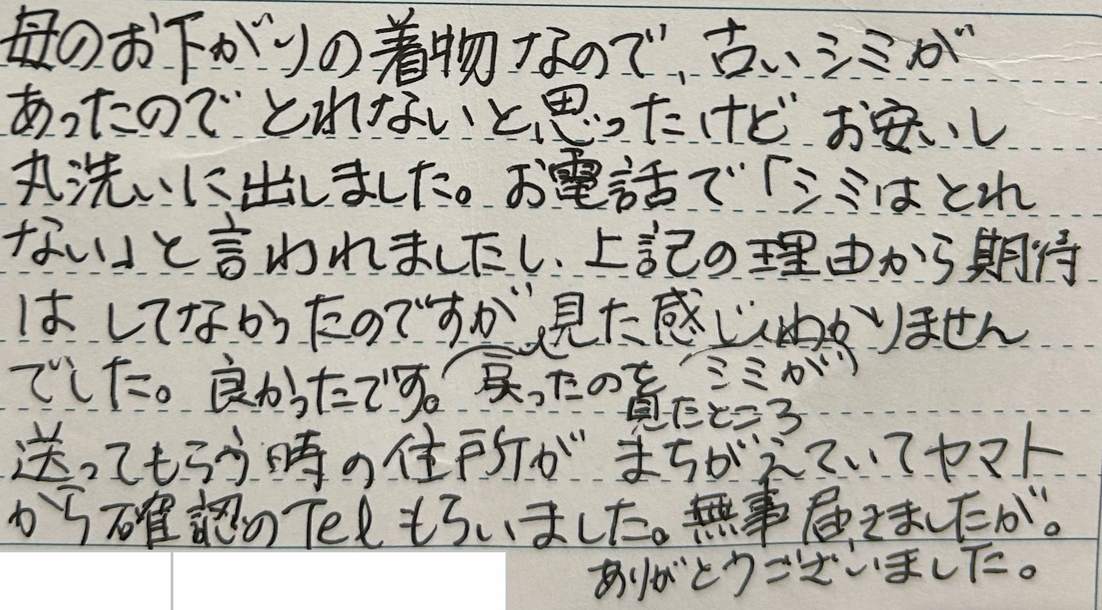 母のお下がりの着物なので、古いシミが
あったのでとれないと思ったけど お安いし
丸洗いに出しました。お電話で「シミはとれ
ない」と言われましたし、上記の理由から期待
はしてなかったのですが、見た感じわかりません
でした。良かったです。(戻ったのを (シミが)
見たところ
送ってもらう時の住所がまちがえていてヤマト
から確認のTelもらいました。無事届きましたが。
ありがとうございました。